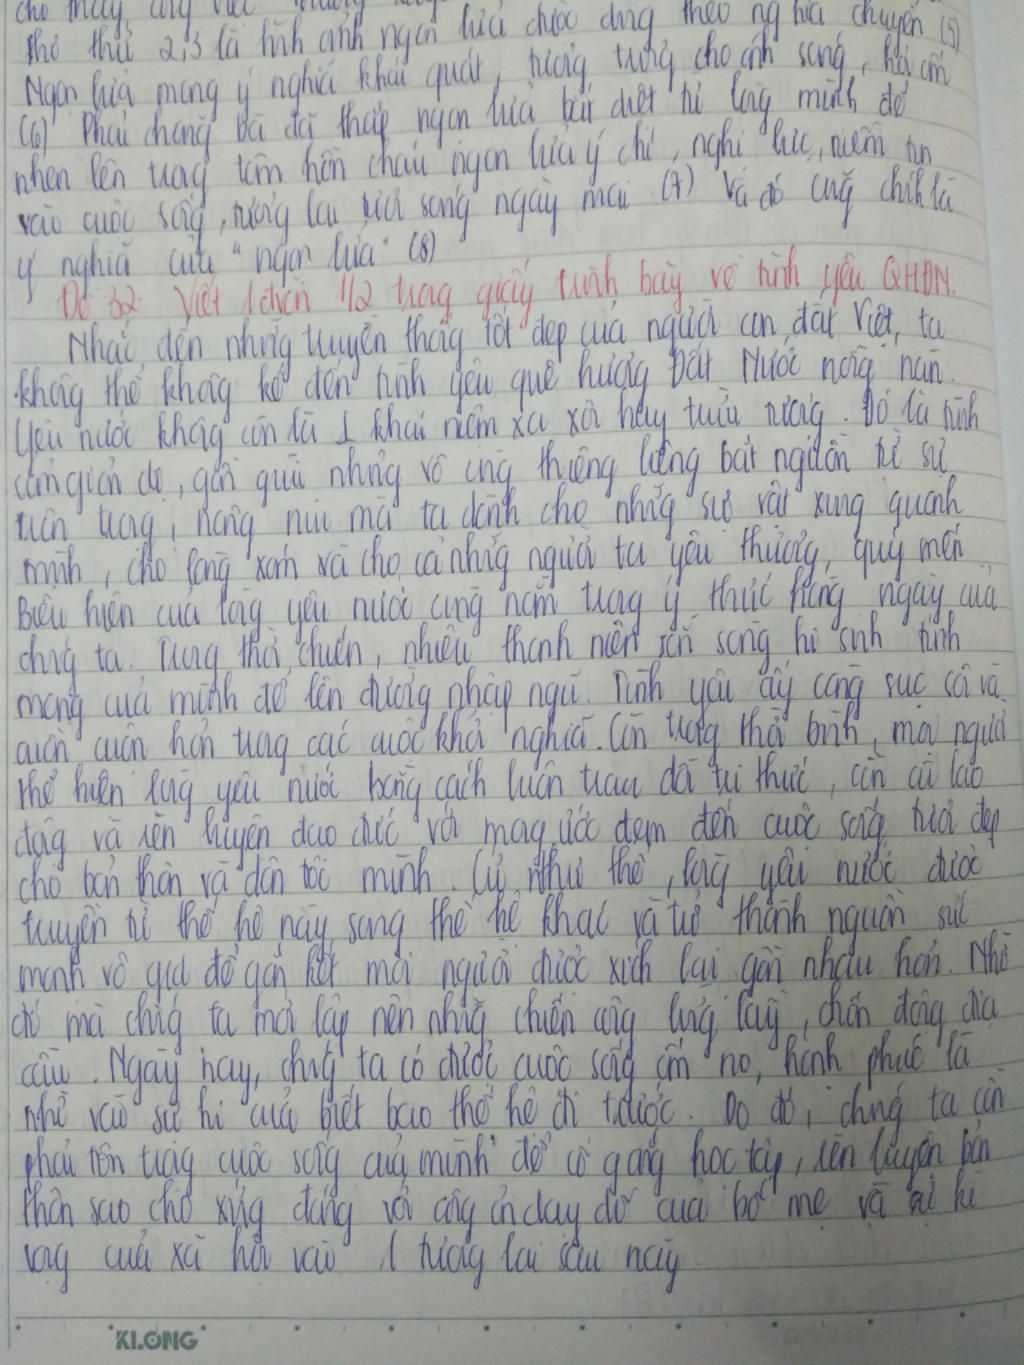 thơ thứ 2,3 là hình ảnh ngọn lửa được dùng theo nghĩa chuyển (5)
Ngọn lửa mang ý nghĩa khái quát, tượng trưng cho ánh sáng, hơi ấm
(6) Phải chăng bà đã thắp ngọn lửa bất diệt từ lòng mình để
nhen lên trong tâm hồn cháu ngọn lửa ý chí, nghị lực, niềm tin
vào cuộc sống, tương lai tươi sáng ngày mai (7) Và đó cũng chính là
ý nghĩa của "ngọn lửa" (8)
Đề 32 Viết 1 đoạn 1/2 trang giấy trình bày về tình yêu QHĐN.
Nhắc đến những truyền thống tốt đẹp của người con đất Việt, ta
không thể không kể đến tình yêu quê hương Đất Nước nồng nàn.
Yêu nước không còn là 1 khái niệm xa xôi hay trừu tượng. Đó là tình
cảm giản dị, gần gũi nhưng vô cùng thiêng liêng bắt nguồn từ sự
trân trọng, nâng niu mà ta dành cho những sự vật xung quanh
mình, cho làng xóm và cho cả những người ta yêu thương, quý mến.
Biểu hiện của lòng yêu nước cũng nằm trong ý thức hằng ngày của
chúng ta. Trong thời chiến, nhiều thanh niên sẵn sàng hi sinh tính
mạng của mình để lên đường nhập ngũ. Tình yêu ấy càng sục sôi và
cuồn cuộn hơn trong các cuộc khởi nghĩa. Còn trong thời bình, mọi người
thể hiện lòng yêu nước bằng cách luôn trau dồi tri thức, cần cù lao
động và rèn luyện đạo đức với mong ước đem đến cuộc sống tươi đẹp
cho bản thân và dân tộc mình. Cứ như thế, lòng yêu nước được
truyền từ thế hệ này sang thế hệ khác và trở thành nguồn sức
mạnh vô giá để gắn kết mọi người được xích lại gần nhau hơn. Nhờ
đó mà chúng ta mới lập nên những chiến công lừng lẫy, chấn động địa
cầu. Ngày nay, chúng ta có được cuộc sống ấm no, hạnh phúc là
nhờ vào sự hi của biết bao thế hệ đi trước. Do đó, chúng ta cần
phải trân trọng cuộc sống của mình để cố gắng học tập, rèn luyện bản
thân sao cho xứng đáng với công ơn dạy dỗ của bố mẹ và sự kì
vọng của xã hội vào 1 tương lai sau này.
KLONG